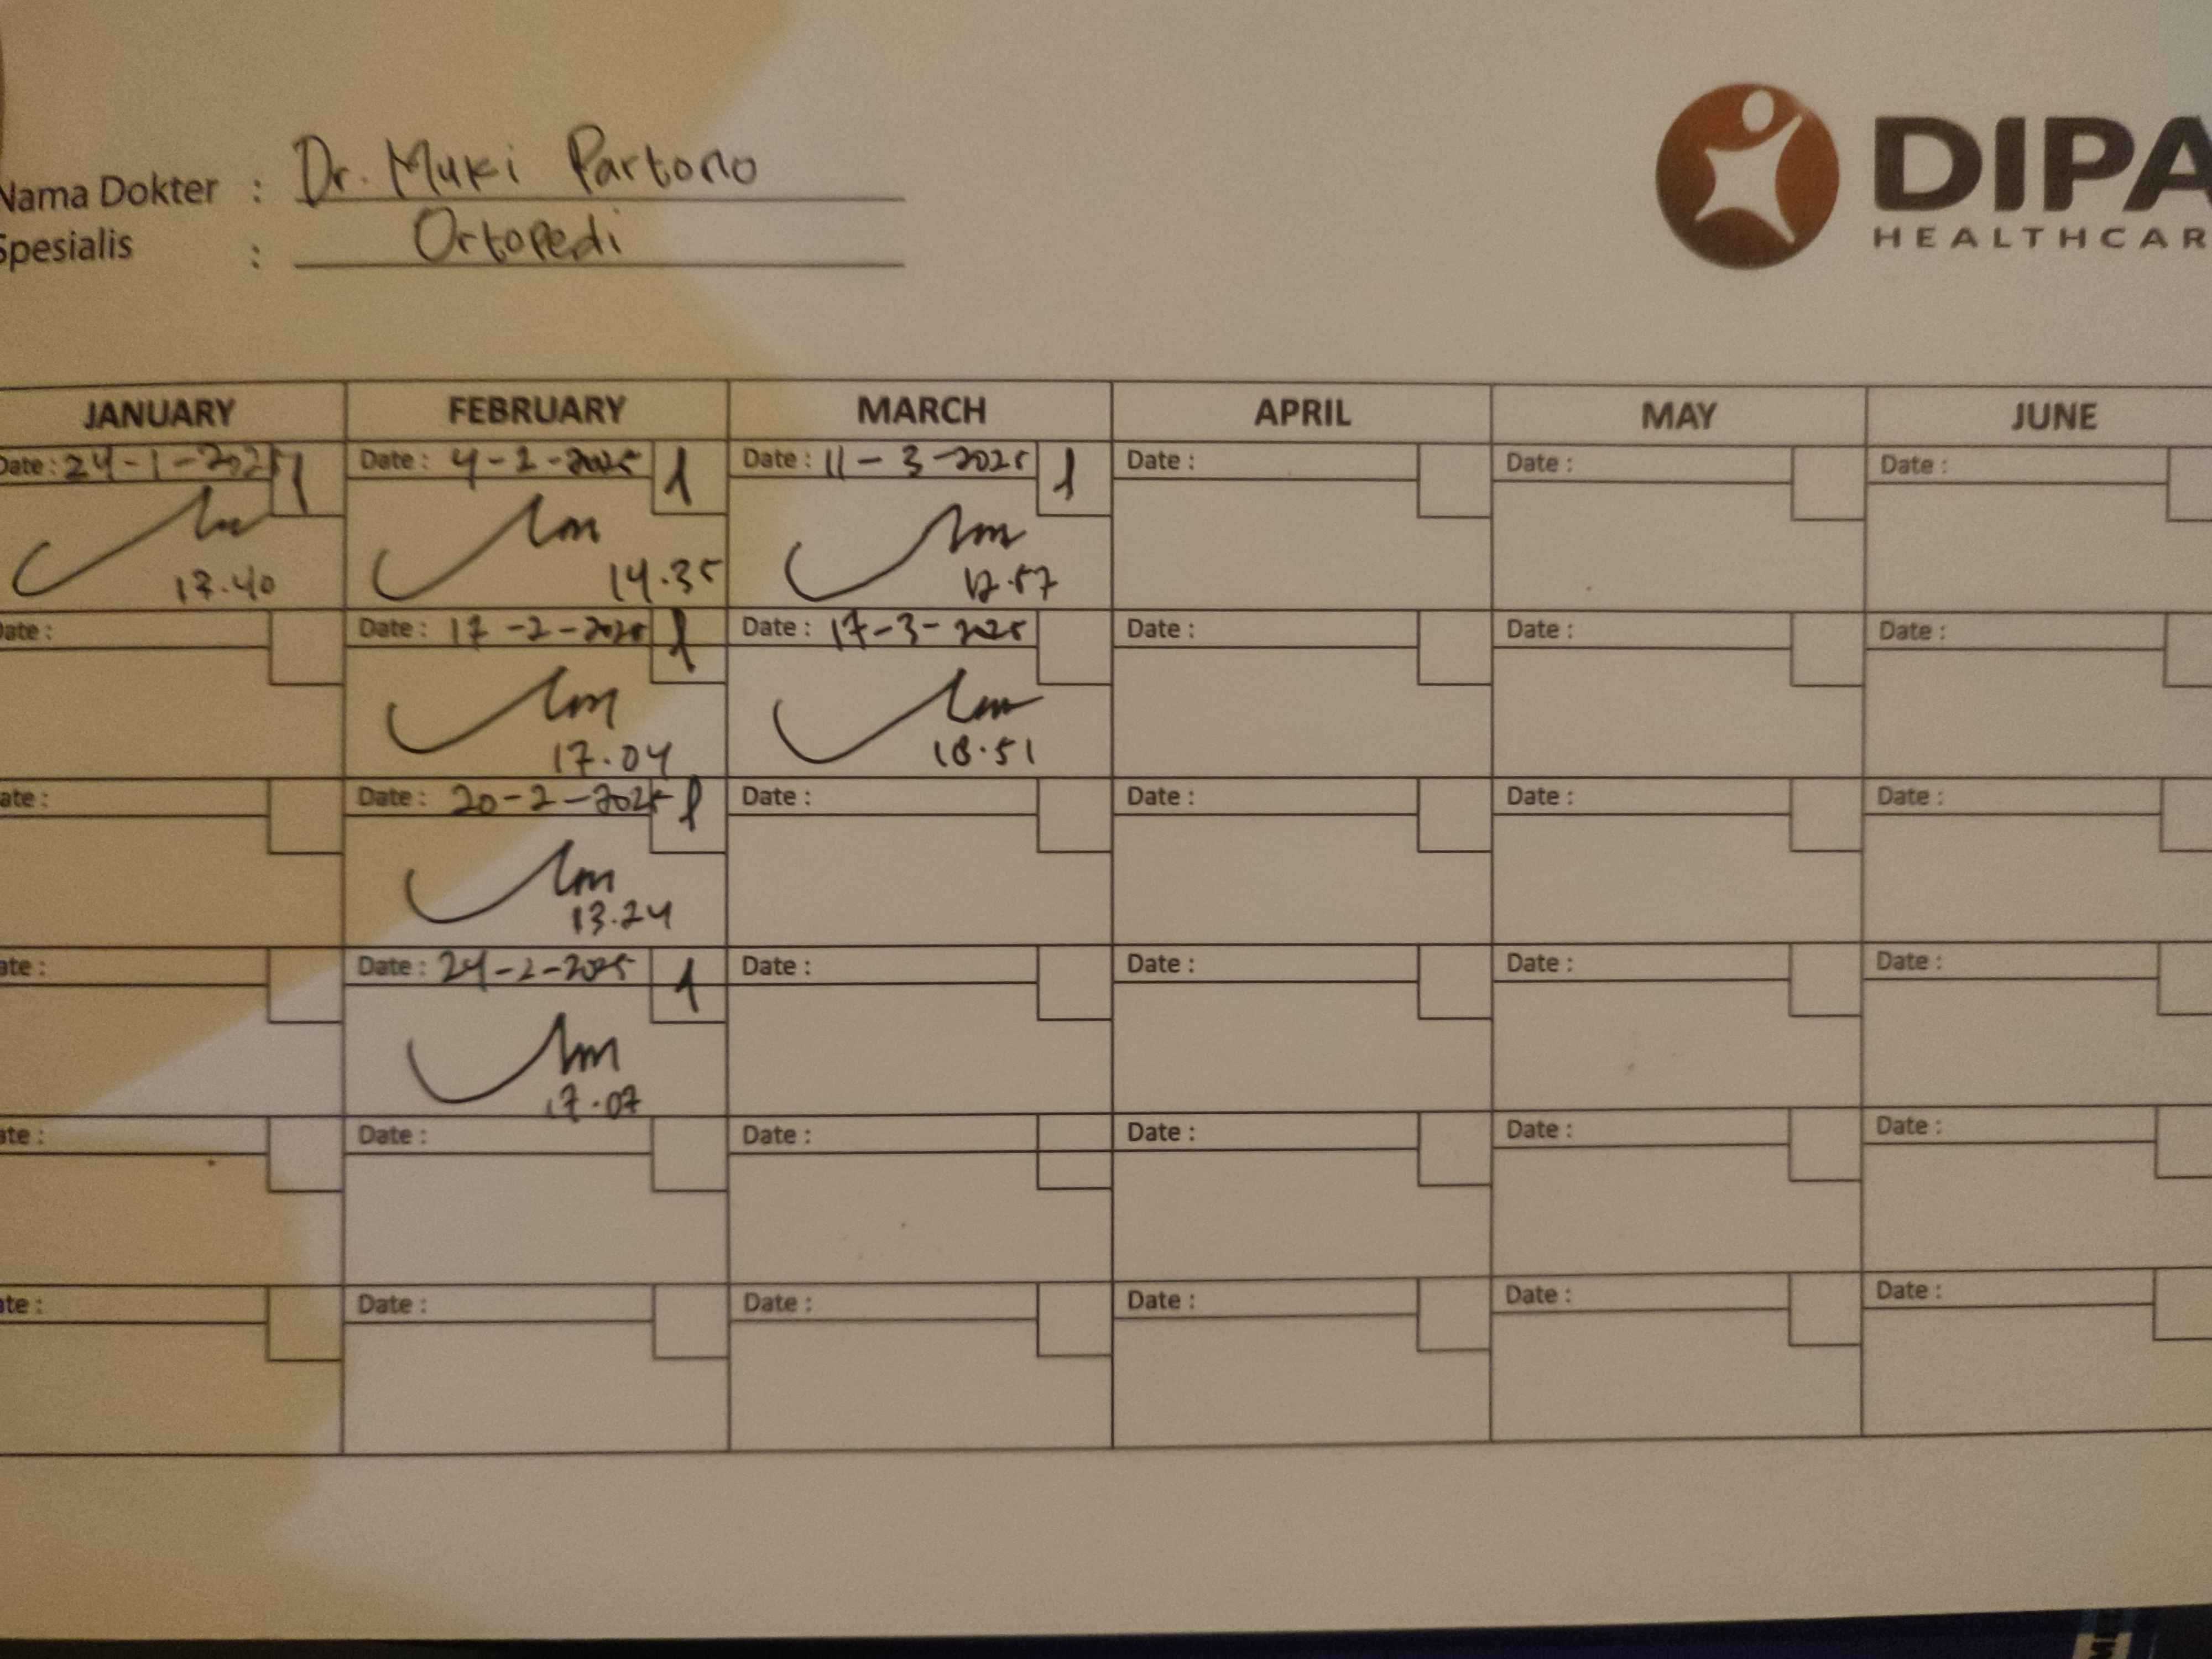 Nama Dokter : Dr. Muki Partono
Spesialis : Ortopedi
DIPA
HEALTHCAR
JANUARY FEBRUARY MARCH APRIL MAY JUNE
Date : 24-1-2025 Date : 4-2-2025 Date : 11-3-2025 Date : Date : Date :
17.40 14.35 57
Date : Date : 17-2-2025 Date : 17-3-2025 Date : Date : Date :
17.04 18.51
ate : Date : 20-2-2025 Date : Date : Date : Date :
13.24
ate : Date : 24-2-2025 Date : Date : Date : Date :
17.07
ate : Date : Date : Date : Date : Date :
ate : Date : Date : Date : Date : Date :